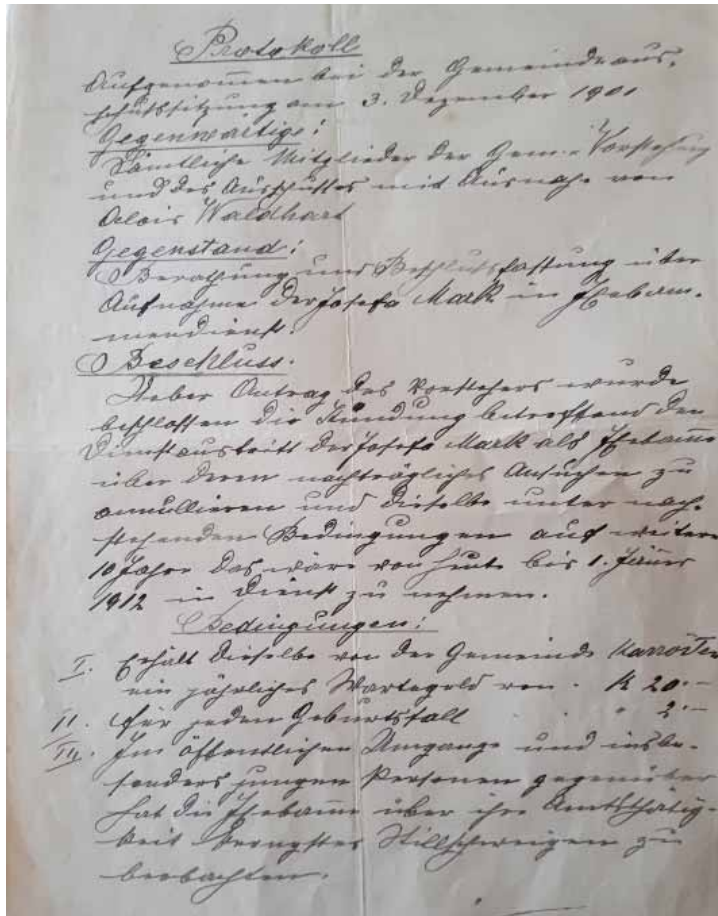 Protokoll
Aufgenommen bei der Gemeindeaus-
schußsitzung am 3. Dezember 1901
Gegenwärtige:
Sämtliche Mitglieder der Gem. Vorstehung
und des Ausschußes mit Ausnahme von
Alois Waldhart
Gegenstand:
Berathung und Beschlussfassung über
Aufnahme der Josefa Mark in Hebam-
mendienst.
Beschluss.
Ueber Antrag des Vorstehers wurde
beschlossen die Kündung betreffend den
Dienstaustritt der Josefa Mark als Hebame
über deren nachträgliches Ansuchen zu
annullieren und dieselbe unter nach-
stehenden Bedingungen auf weitere
10 Jahre das wäre von heute bis 1. Jäner
1912 in Dienst zu nehmen.
Bedingungen:
I. Erhält dieselbe von der Gemeinde Karrösten
ein jährliches Wartegeld von . K 20.–
II. für jeden Geburtsfall . . " 2.–
III. Im öffentlichen Umgange und insbe-
sonders jungen Personen gegenüber
hat die Hebame über ihre Amtsthätig-
keit strengstes Stillschweigen zu
beobachten.